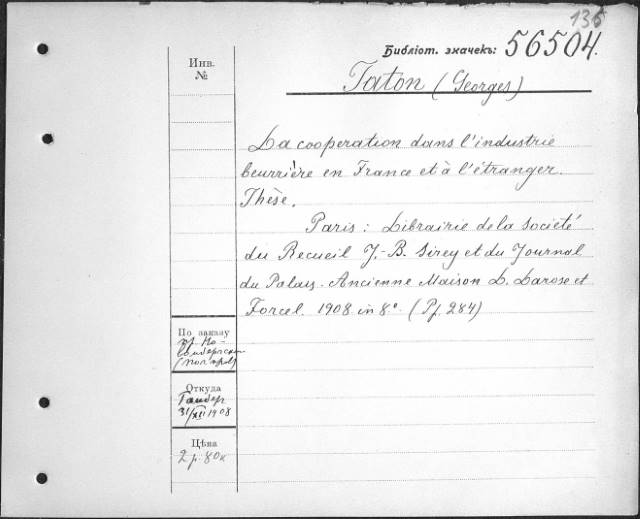 135
Библіот. значекъ: 56504.
Инв.
№
Taton (Georges)
La cooperation dans l'industrie
beurrière en France et à l'étranger.
Thèse.
Paris: Librairie de la société
du Recueil J.-B. Sirey et du Journal
du Palais. Ancienne Maison L. Larose et
Forcel 1908 in 8° (Pf. 284)
По заказу
Откуда
31/XII 1908
Цѣна
2 р. 80к